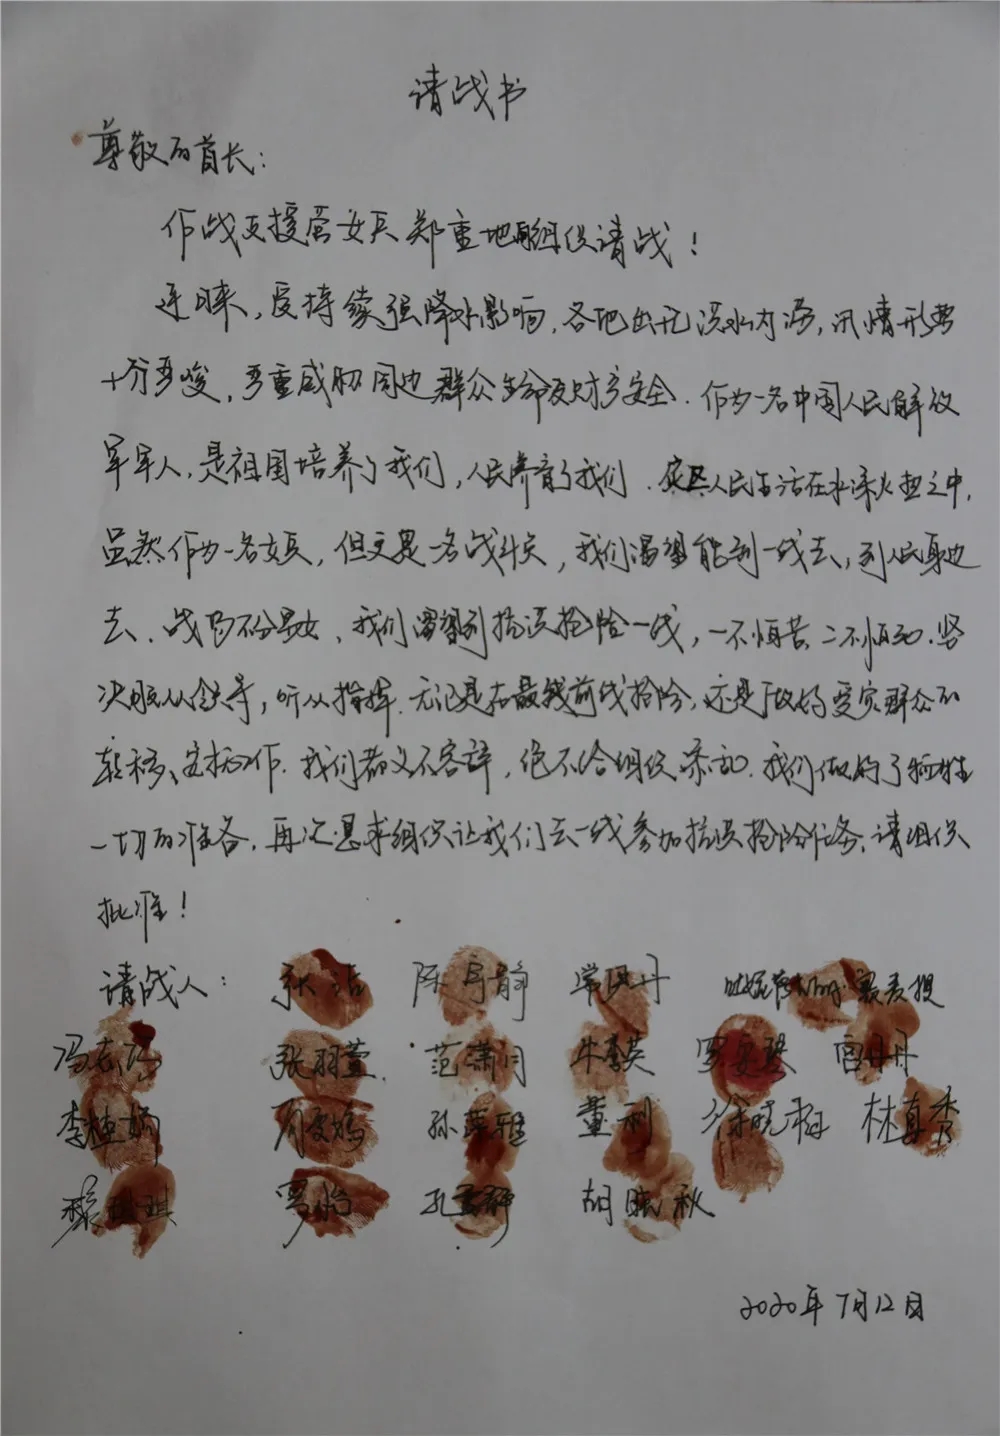 请战书
尊敬的首长：
作战支援营女兵郑重地向组织请战！
连日来，受持续强降水影响，各地出现洪水内涝，汛情形势
十分严峻，严重威胁周边群众生命及财产安全．作为一名中国人民解放
军军人，是祖国培养了我们，人民养育了我们．灾区人民生活在水深火热之中，
虽然作为一名女兵，但又是一名战斗员，我们渴望能到一线去，到人民身边
去．战马不分男女，我们渴望到抗洪抢险一线，一不怕苦，二不怕死．坚
决服从领导，听从指挥．无论是在最前线抢险，还是做好受灾群众的
转移、安抚工作．我们都义不容辞，绝不给组织添乱．我们做好了牺牲
一切的准备．再次恳求组织让我们去一线参加抗洪抢险任务，请组织
批准！
请战人： 张洁 陈 静 常 丹
张羽萱 范潇月 牛 英 宫丹丹
李 娟 孙 雅 董利 徐晓梅 林真秀
琪 罗怡 孔 胡晓秋
2020年7月12日